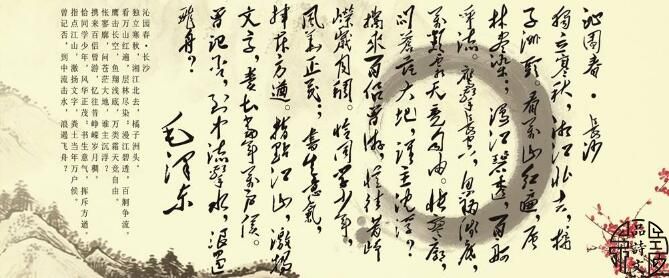 沁园春·长沙
独立寒秋，湘江北去，橘
子洲头。看万山红遍，层
林尽染；漫江碧透，百舸
争流。鹰击长空，鱼翔浅底，
万类霜天竞自由。怅寥廓，
问苍茫大地，谁主沉浮？
携来百侣曾游，忆往昔峥
嵘岁月稠。恰同学少年，
风华正茂；书生意气，
挥斥方遒。指点江山，激扬
文字，粪土当年万户侯。
曾记否，到中流击水，浪遏
飞舟？
毛泽东
沁园春·长沙
独立寒秋，湘江北去，橘子洲头。
看万山红遍，层林尽染；漫江碧透，百舸争流。
鹰击长空，鱼翔浅底，万类霜天竞自由。
怅寥廓，问苍茫大地，谁主沉浮？
携来百侣曾游，忆往昔峥嵘岁月稠。
恰同学少年，风华正茂；书生意气，挥斥方遒。
指点江山，激扬文字，粪土当年万户侯。
曾记否，到中流击水，浪遏飞舟？